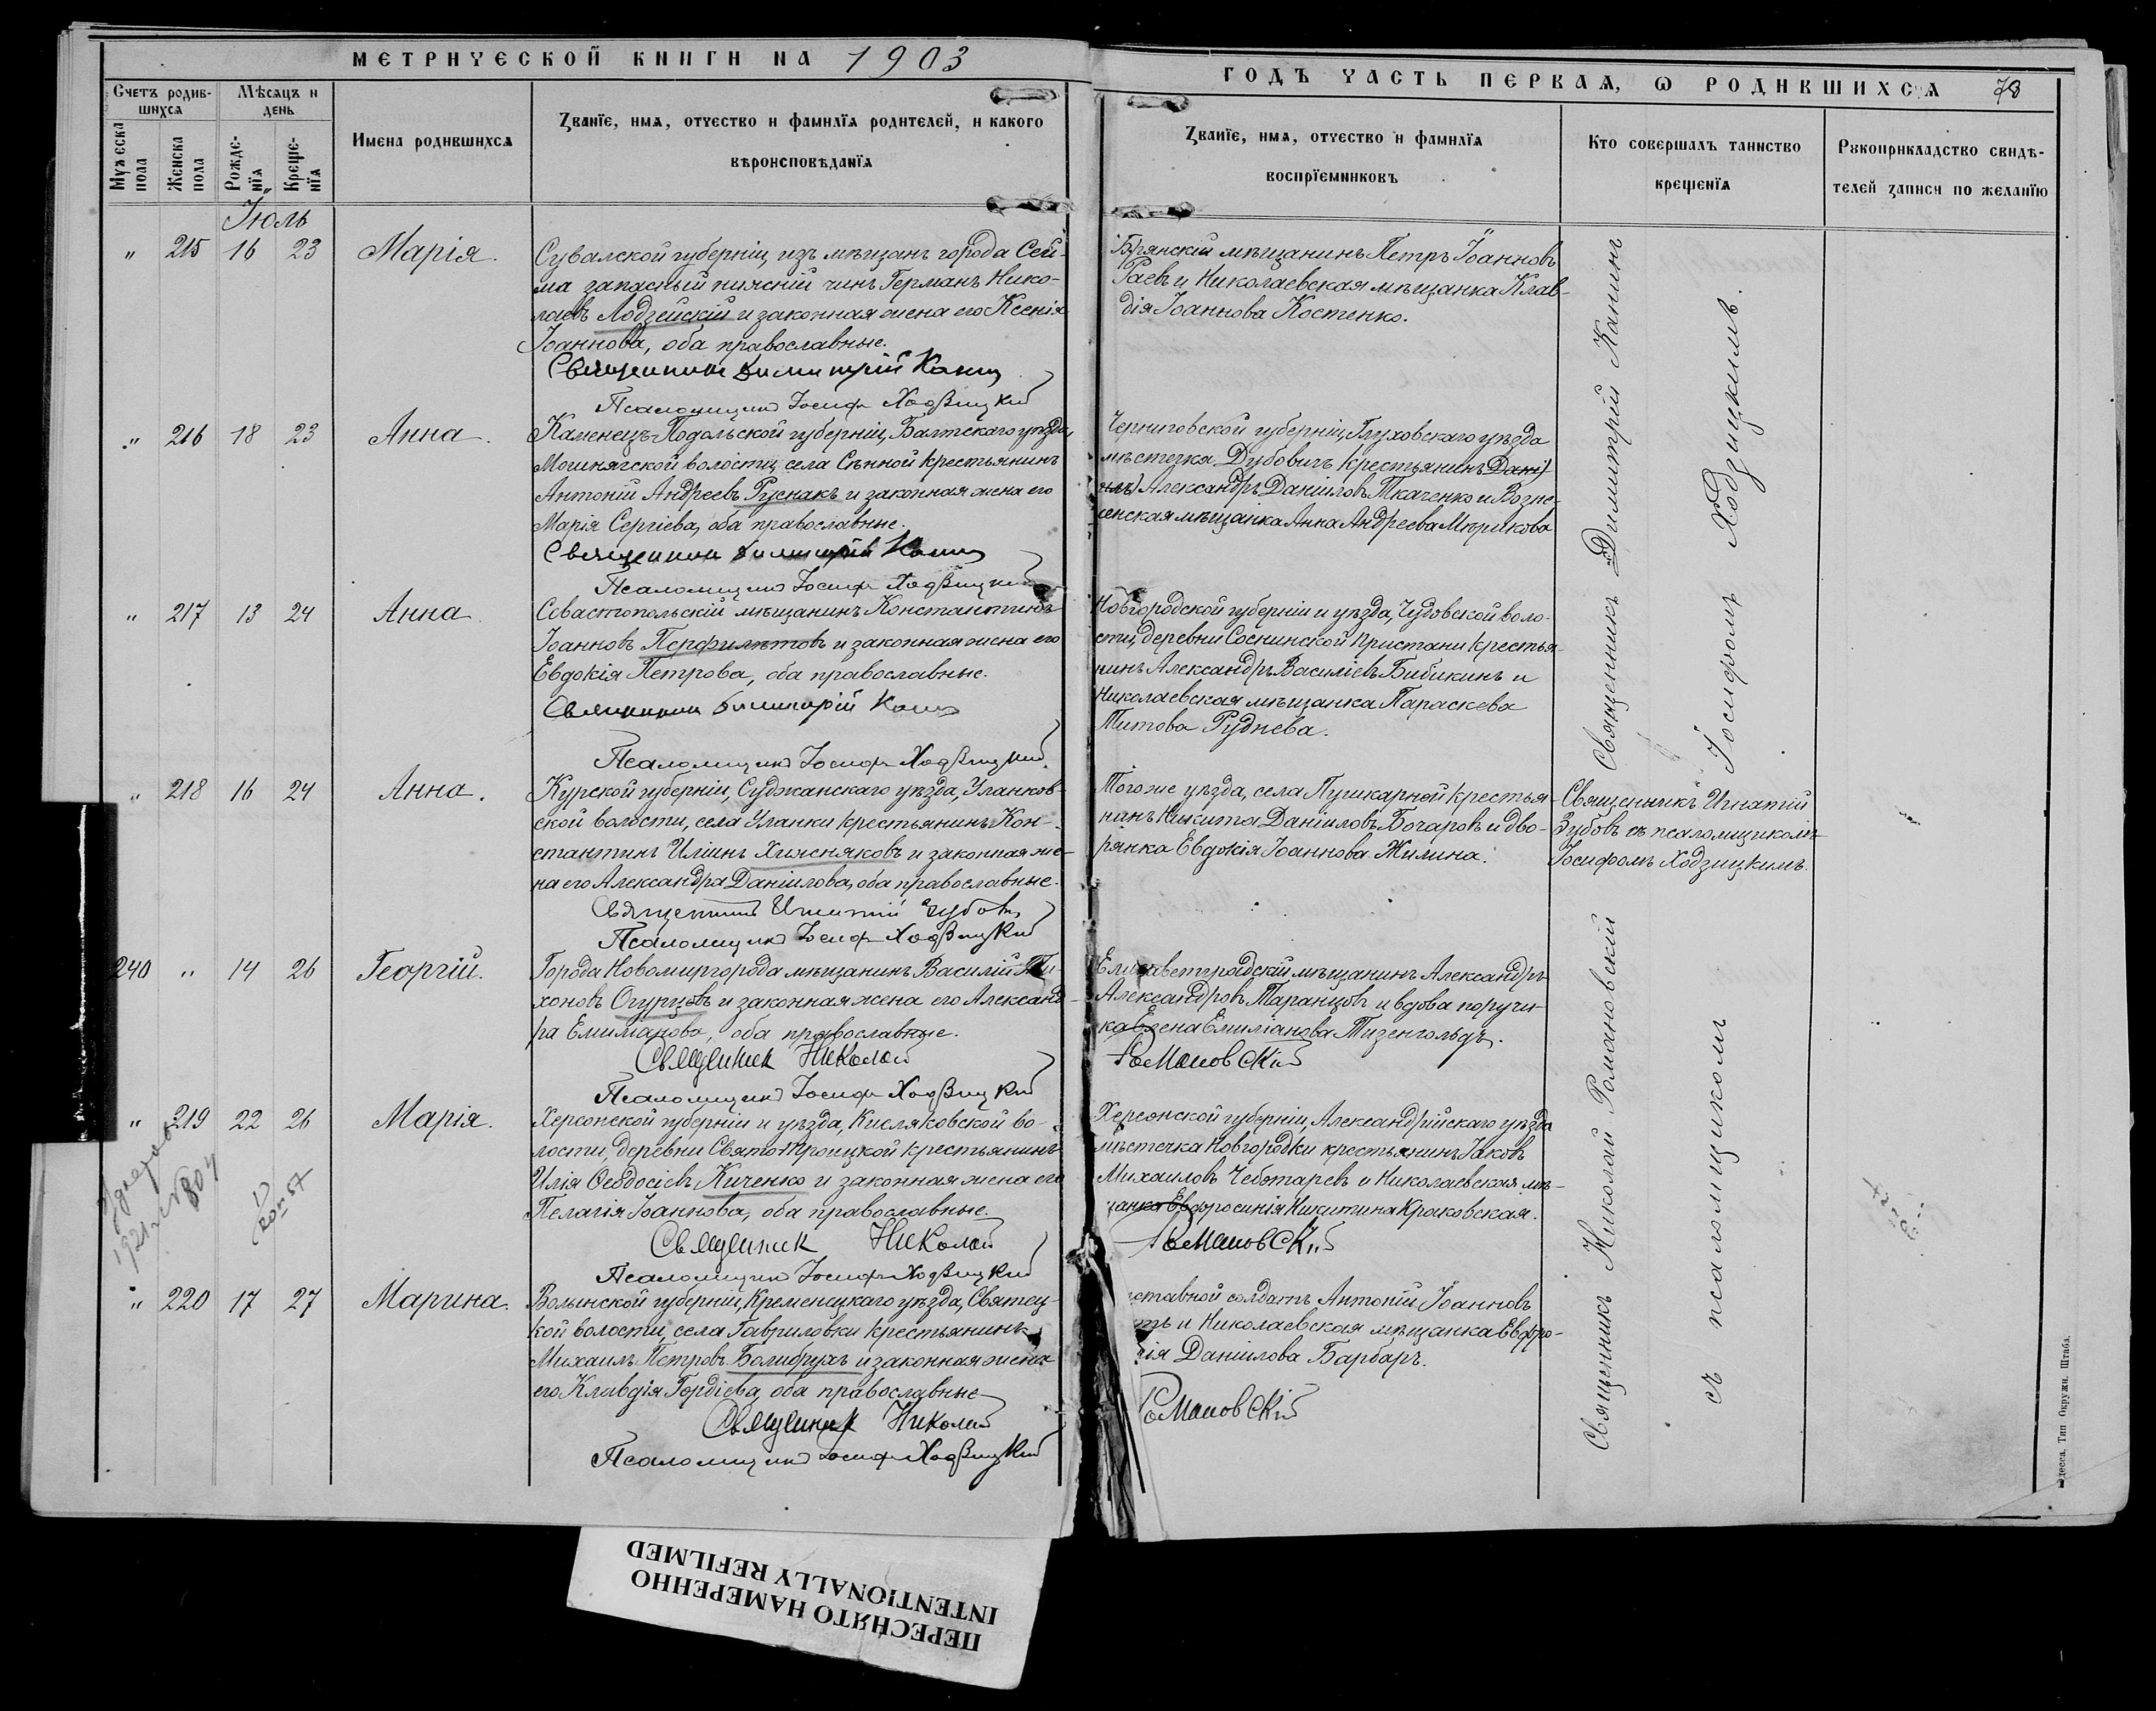 МЕТРИЧЕСКОЙ КНИГИ НА 1903
Счетъ родив-
шихся
Мѣсяцъ и
день
Мужеска
пола
Женска
пола
Рожде-
нїя
Креще-
нїя
Имена родившихся
Званїе, имя, отчество и фамилїя родителей, и какого
вѣроисповѣданїя
Іюль
„ 215 16 23 Марія.
Сувалской губерніи, изъ мѣщанъ города Сей-
ма запасный нижній чинъ Германъ Нико-
лаевъ Лодзейскій и законная жена его Ксенія
Іоаннова, оба православные.
Священникъ Димитрій Канинъ
Псаломщикъ Іосифъ Ходзицкій
„ 216 18 23 Анна.
Каменецъ-Подольской губерніи, Балтскаго уѣзда,
Мошнягской волости, села Сѣнной крестьянинъ
Антоній Андреевъ Руснакъ и законная жена его
Марія Сергіева, оба православные.
Священникъ Димитрій Канинъ
Псаломщикъ Іосифъ Ходзицкій
„ 217 13 24 Анна.
Севастопольскій мѣщанинъ Константинъ
Іоанновъ Перфильтовъ и законная жена его
Евдокія Петрова, оба православные.
Священникъ Димитрій Канинъ
Псаломщикъ Іосифъ Ходзицкій.
„ 218 16 24 Анна.
Курской губерніи, Суджанскаго уѣзда, Уланков-
ской волости, села Уланки крестьянинъ Кон-
стантинъ Иліинъ Хижняковъ и законная же-
на его Александра Даніилова, оба православные.
Священникъ Игнатій Зубовъ
Псаломщикъ Іосифъ Ходзицкій
240 „ 14 26 Георгій.
Города Новомиргорода мѣщанинъ Василій Ти-
хоновъ Огурцовъ и законная жена его Александ-
ра Емиліанова, оба православные.
Священникъ Николай
Псаломщикъ Іосифъ Ходзицкій
„ 219 22 26 Марія.
Херсонской губерніи и уѣзда, Кисляковской во-
лости, деревни Свято-Троицкой крестьянинъ
Илія Ѳеодосіевъ Киченко и законная жена его
Пелагія Іоаннова, оба православные.
Священникъ Николай
Псаломщикъ Іосифъ Ходзицкій
„ 220 17 27 Марина.
Волынской губерніи, Кременецкаго уѣзда, Святец-
кой волости, села Гавриловки крестьянинъ
Михаилъ Петровъ Болибрухъ и законная жена
его Клавдія Гордіева, оба православные
Священникъ Николай
Псаломщикъ Іосифъ Ходзицкій
ГОДЪ ЧАСТЬ ПЕРВАЯ, Ѡ РОДИВШИХСЯ 78
Званїе, имя, отчество и фамилїя
воспрїемниковъ
Кто совершалъ таинство
крещенїя
Рукоприкладство свидѣ-
телей записи по желанїю
Брянскій мѣщанинъ Петръ Іоанновъ
Раевъ и Николаевская мѣщанка Клав-
дія Іоаннова Костенко.
Черниговской губерніи, Глуховскаго уѣзда
мѣстечка Дубовичъ крестьянинъ Дані-
илъ) Александръ Даніиловъ Ткаченко и Возне-
сенская мѣщанка Анна Андреева Мѣрикова
Новгородской губерніи и уѣзда, Чудовской воло-
сти, деревни Соснинской Пристани крестья-
нинъ Александръ Василіевъ Бибикинъ и
Николаевская мѣщанка Параскева
Титова Руднева.
Священникъ Димитрій Канинъ
Іосифомъ Ходзицкимъ.
Того же уѣзда, села Пушкарной крестья-
нинъ Никита Даніиловъ Бочаровъ и дво-
рянка Евдокія Іоаннова Жилина.
Священникъ Игнатій
Зубовъ съ псаломщикомъ
Іосифомъ Ходзицкимъ.
Елисаветградскій мѣщанинъ Александръ
Александровъ Таранцовъ и вдова поручи-
ка Елена Емиліанова Тизенгольдъ.
Романовскій
Херсонской губерніи, Александрійскаго уѣзда
мѣстечка Новгородки крестьянинъ Іаковъ
Михаиловъ Чеботаревъ и Николаевская мѣ-
щанка Евфросинія Никитина Краковская.
Романовскій
ставной солдатъ Антоній Іоанновъ
тъ и Николаевская мѣщанка Евфро-
нія Даніилова Барбаръ.
Романовскій
Священникъ Николай Романовскій
съ псаломщикомъ
Одесса. Тип. Окружн. Штаба.
ПЕРЕСНЯТО НАМЕРЕННО
INTENTIONALLY REFILMED